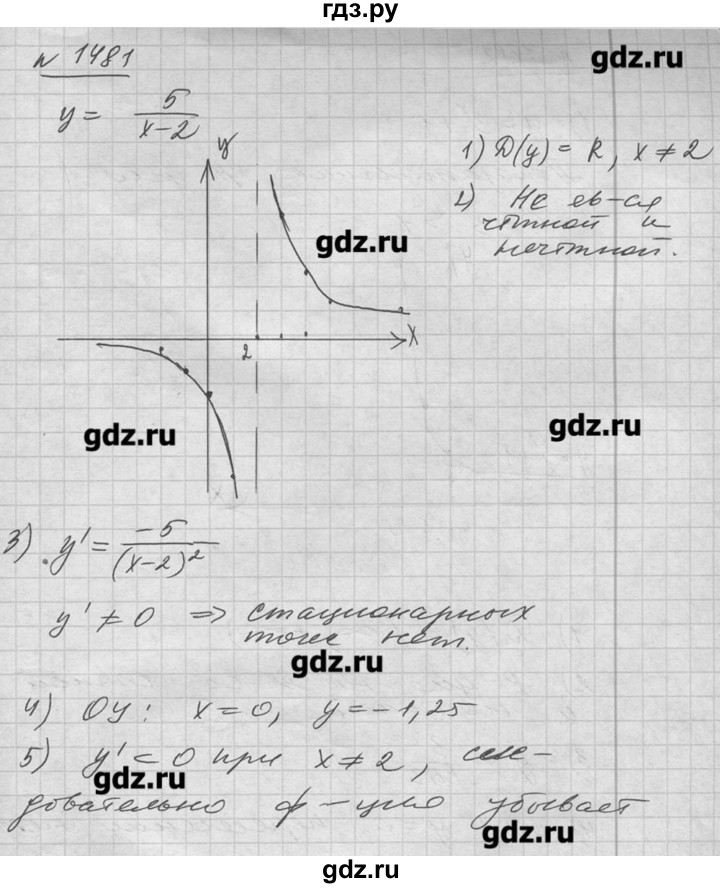 гдз.ру
N 1481
gdz.ru
y = 5/(x-2)
y
1) D(y) = R, x ≠ 2
2) Не яв-ся
чётной и
нечётной.
gdz.ru
2
x
gdz.ru
gdz.ru
3) y' = -5/(x-2)²
y' ≠ 0 => стационарных
точек нет.
gdz.ru
4) OY: x = 0, y = -1,25
5) y' < 0 при x ≠ 2, сле-
gdz.ru
довательно ф-ция убывает
gdz.ru
gdz.ru